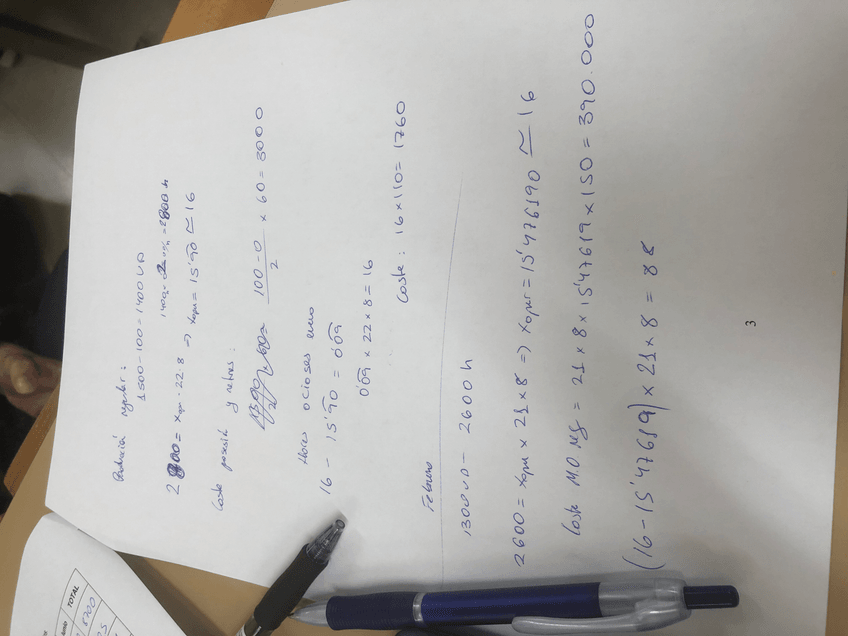 Producción regular:
1500-100=1400 UD
1400 = 2800 h
2800 = xoper · 22 8 => xoper = 15'90 ≃ 16
Coste posesión y retraso:
100-0 / 2 × 60 = 3000
Horas ociosas enero
16 - 15'90 = 0'09
0'09 × 22 × 8 = 16
Coste: 16×110= 1760
Febrero
1300 UD - 2600 h
2600 = xoper × 21×8 => xoper = 15'476190 ≃ 16
Coste M.O reg = 21×8×15'47619×150 = 390.000
(16-15'47619)×21×8 = 88
3
TOTAL
8700